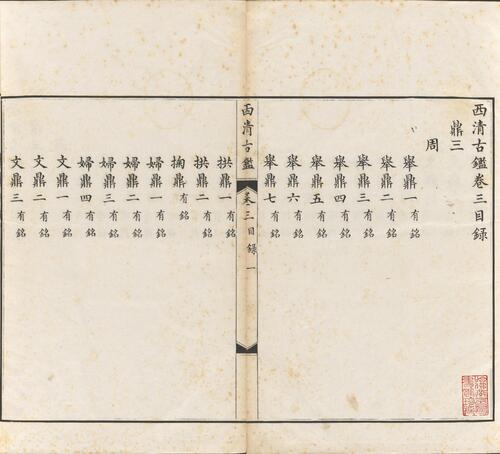 西清古鑑卷三目録
鼎三
周
舉鼎一有銘
舉鼎二有銘
舉鼎三有銘
舉鼎四有銘
舉鼎五有銘
舉鼎六有銘
舉鼎七有銘
西清古鑑 卷三目録 一
拱鼎一有銘
拱鼎二有銘
掬鼎有銘
婦鼎一有銘
婦鼎二有銘
婦鼎三有銘
婦鼎四有銘
文鼎一有銘
文鼎二有銘
文鼎三有銘